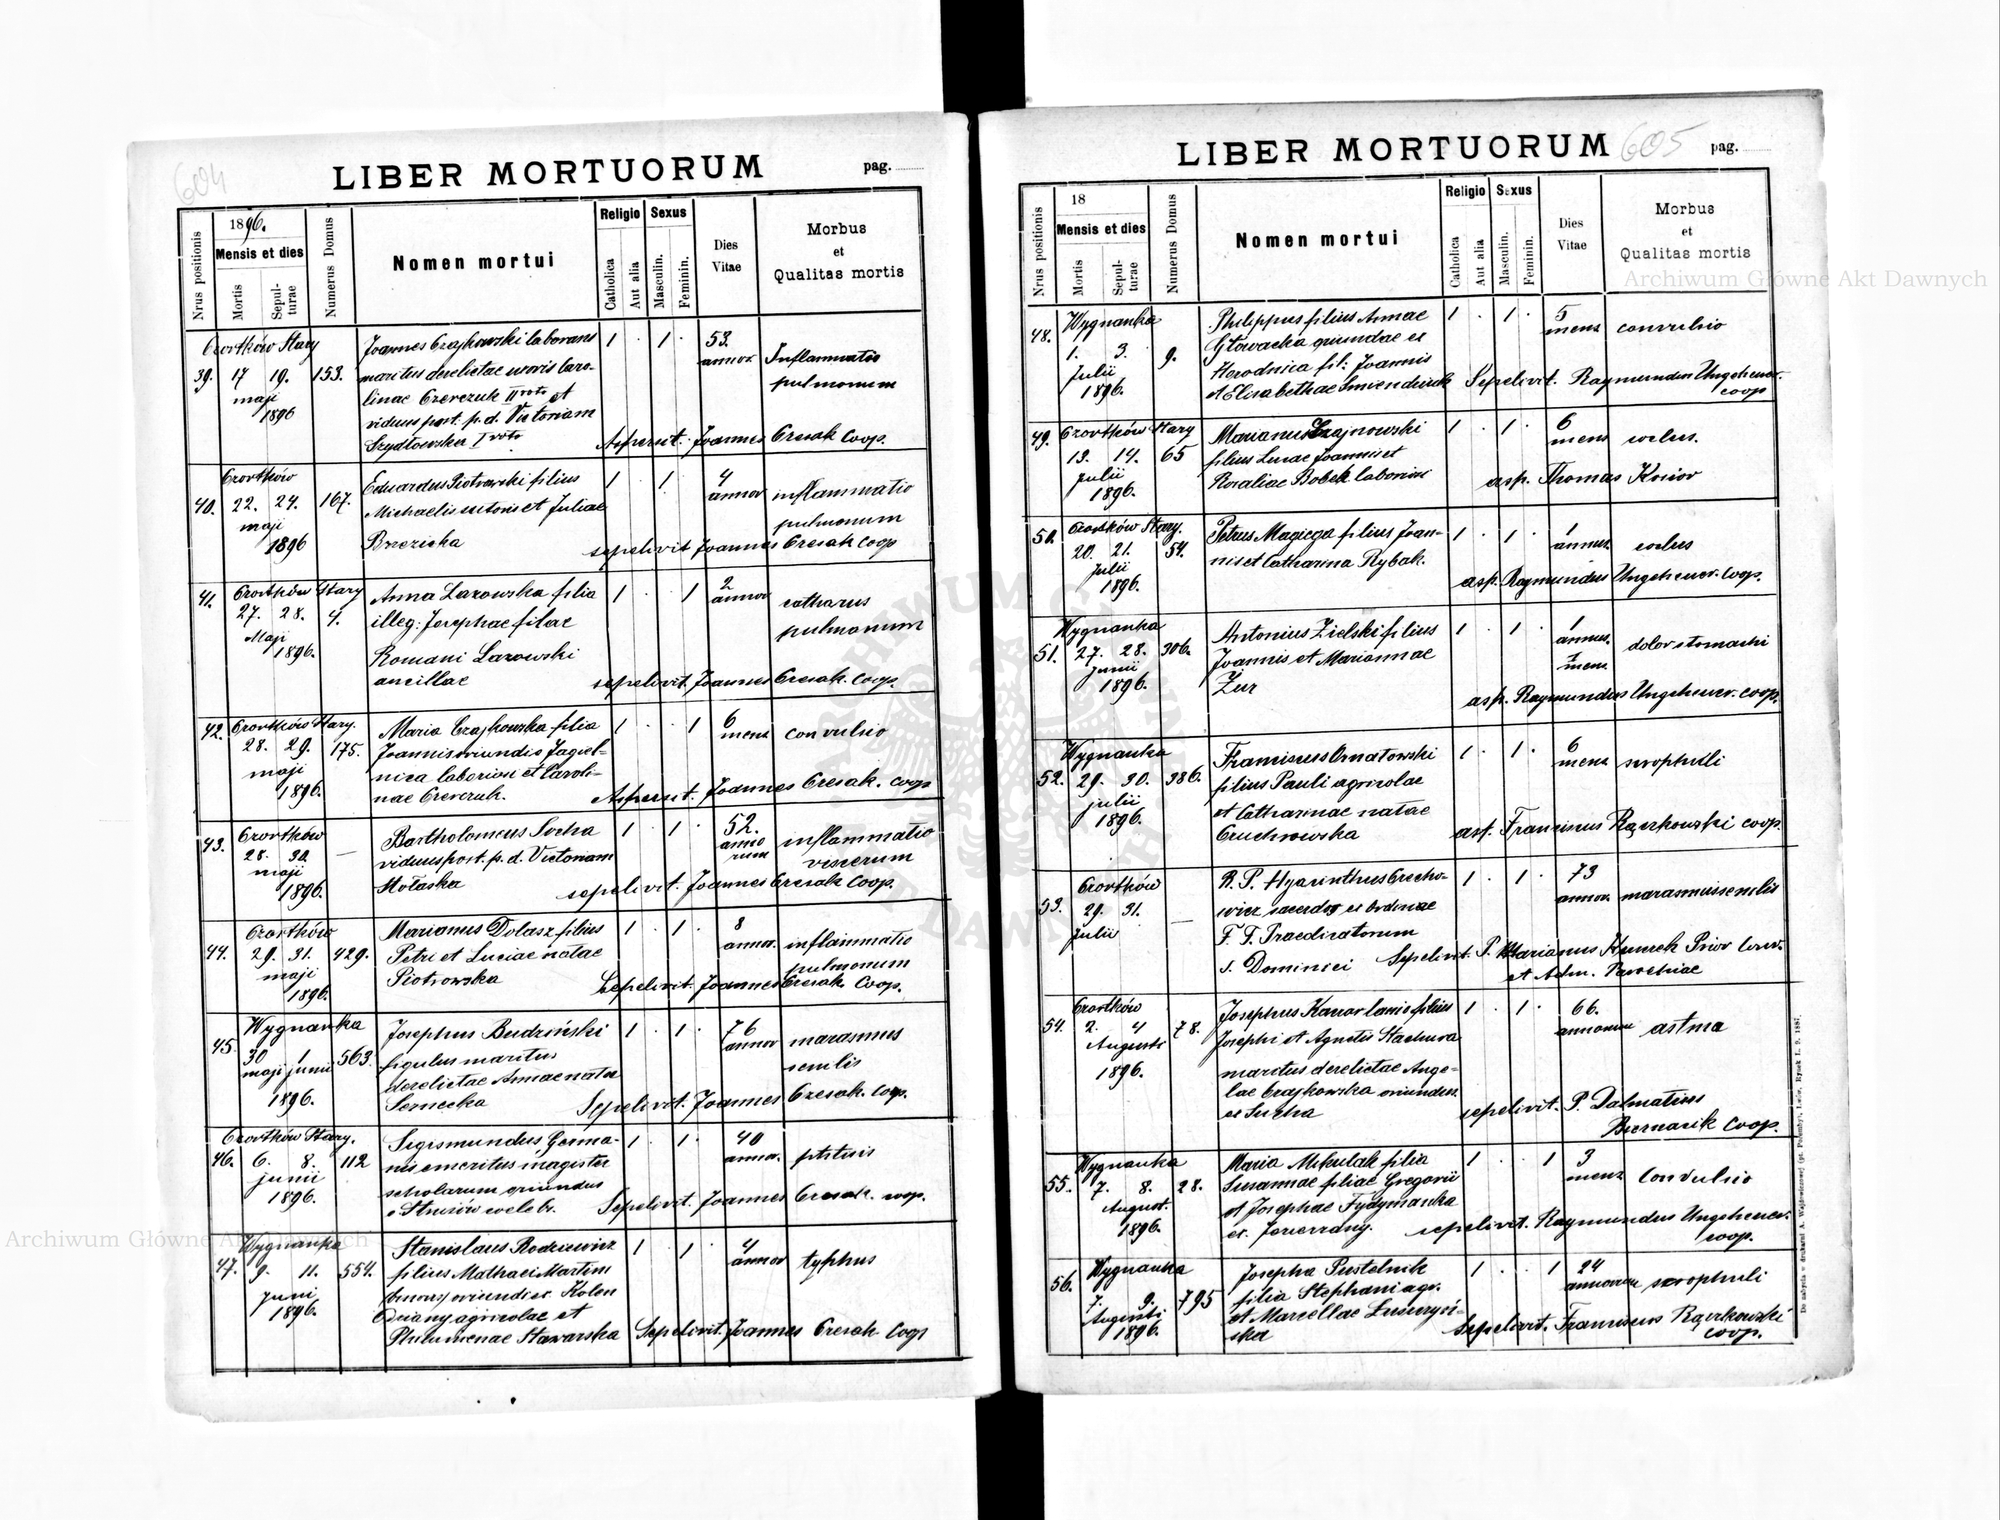 604
LIBER MORTUORUM
pag.
Nrus positionis
1896.
Mensis et dies
Mortis
Sepul-
turae
Numerus Domus
Nomen mortui
Religio
Catholica
Aut alia
Sexus
Masculin.
Feminin.
Dies
Vitae
Morbus
et
Qualitas mortis
Czortków Stary
39. 17 19. 153.
maji
1896
Joannes Czajkowski laborans
maritus derelictae uxoris Caro-
linae Czerczuk II voto et
viduus post. p. d. Victoriam
Szydłowska I voto.
1 . 1 .
53.
annor.
Inflammatio
pulmonum
Aspersit. Joannes Cresak Coop.
Czortków
40. 22. 24. 167.
maji
1896
Eduardus Piotrowski filius
Michaelis sutoris et Juliae
Brzezicka
1 . 1
4
annor
inflammatio
pulmonum
sepelivit Joannes Cresak Coop
Czortków Stary
41. 27. 28. 4.
Maji
1896.
Anna Lazowska filia
illeg: Josephae filae
Romani Lazowski
ancillae
1 . 1
2
annor
catharus
pulmonum
sepelivit. Joannes Cresak. Coop.
Czortków Stary.
42. 28. 29. 175.
maji
1896.
Maria Czajkowska filia
Joannis oriundi e Jagiel-
nica laboriosi et Caroli-
nae Czerczuk.
1 . . 1
6
mens
convulsio
Aspersit. Joannes Cresak. Coop
Czortków
43. 28. 30. —
maji
1896.
Bartholomeus Socha
viduus post. p. d. Victoriam
Mołaska
1 . 1 .
52.
anno
rum
inflammatio
viscerum
sepelivit. Joannes Cresak Coop.
Czortków
44. 29. 31. 429.
maji
1896.
Marianus Dolasz filius
Petri et Luciae natae
Piotrowska
1 . 1 .
8
annor.
inflammatio
pulmonum
Sepelivit. Joannes Cresak. Coop.
Wygnanka
45. 30 1 563.
maji junii
1896.
Josephus Budziński
figulus maritus
derelictae Annae nata
Sernecka
1 . 1 .
76
annor
marasmus
senilis
Sepelivit. Joannes Cresak. Coop.
Czortków Stary.
46. 6. 8. 112
junii
1896.
Sigismundus Germa-
nus emeritus magister
scholarum oriundus
e Strusów coeleb.
1 . 1 .
40
annor.
phtisis
Sepelivit Joannes Cresak. coop.
Wygnanka
47. 9. 11. 554.
Juni
1896.
Stanislaus Rodziewicz
filius Mathaei Martin
oriundi ex. Kolen
agricolae et
Philumenae Stawarska
1 . 1 .
4
annor
typhus
Sepelivit. Joannes Cresak Coop
605
LIBER MORTUORUM
pag.
Nrus positionis
18
Mensis et dies
Mortis
Sepul-
turae
Numerus Domus
Nomen mortui
Religio
Catholica
Aut alia
Sexus
Masculin.
Feminin.
Dies
Vitae
Morbus
et
Qualitas mortis
Wygnanka
48. 1. 3. 9.
Julii
1896.
Philippus filius Annae
Głowacka oriundae ex
Horodnica fil: Joannis
et Elisabethae
1 . 1 .
5
mens
convulsio
Sepelivit. Raymundus Ungeheuer.
coop
Czortków Stary
49. 13. 14. 65
Julii
1896.
Marianus Czajnowski
filius Lucae Joannis et
Rosaliae Bobek laborios
1 . 1 .
6
mens
coelus.
asp. Thomas Kosior
Czortków Stary.
50. 20. 21. 54.
Julii
1896.
Petrus Magiega filius Joan-
nis et Catharina Rybak.
1 . 1 .
1
annus.
coelus
asp. Raymundus Ungeheuer. Coop.
Wygnanka
51. 27. 28. 306.
Junii
1896.
Antonius Zielski filius
Joannis et Mariannae
Żur
1 . 1 .
1
annus.
1
mens
dolor stomachi
asp. Raymundus Ungeheuer. coop.
Wygnanka
52. 29. 30. 386.
julii
1896.
Franciscus Ornatowski
filius Pauli agricolae
et Catharinae natae
Gruchnowska
1 . 1 .
6
mens
scrophuli
asp. Franciscus Rączkowski coop.
Czortków
53. 29. 31. —
Julii
R. P. Hyacinthus Grecho-
wicz sacerdos ex Ordinae
F. F. Praedicatorum
s. Dominici
1 . 1 .
73
annor.
marasmus senilis
Sepelivit. P. Marianus Prior Conv.
et Adm. Parochiae
Czortków
54. 2. 4 78.
Augusti
1896.
Josephus Kanor lanio filius
Josephi et Agnetis Stachura
maritus derelictae Ange-
lae Czajkowska oriundus
ex Sucha
1 . 1 .
66.
annorum
astma
sepelivit. P. Dalmatius
Biernacik Coop.
Wygnanka
55. 7. 8. 28.
August.
1896.
Maria Mikulak filia
Susannae filiae Gregorii
et Josephae Tydymanka
ex. Jezierzany.
1 . . 1
3
mens
Convulsio
sepelivit. Raymundus Ungeheuer.
coop.
Wygnanka
56. 7. 9. 795
Augusti
1896.
Josepha Pustelnik
filia Stephani agr.
et Marcellae
ska
1 . . 1
24
annorum
scrophuli
Sepelivit. Franciscus Rączkowski
coop.
Archiwum Główne Akt Dawnych
Archiwum Główne Akt Dawnych